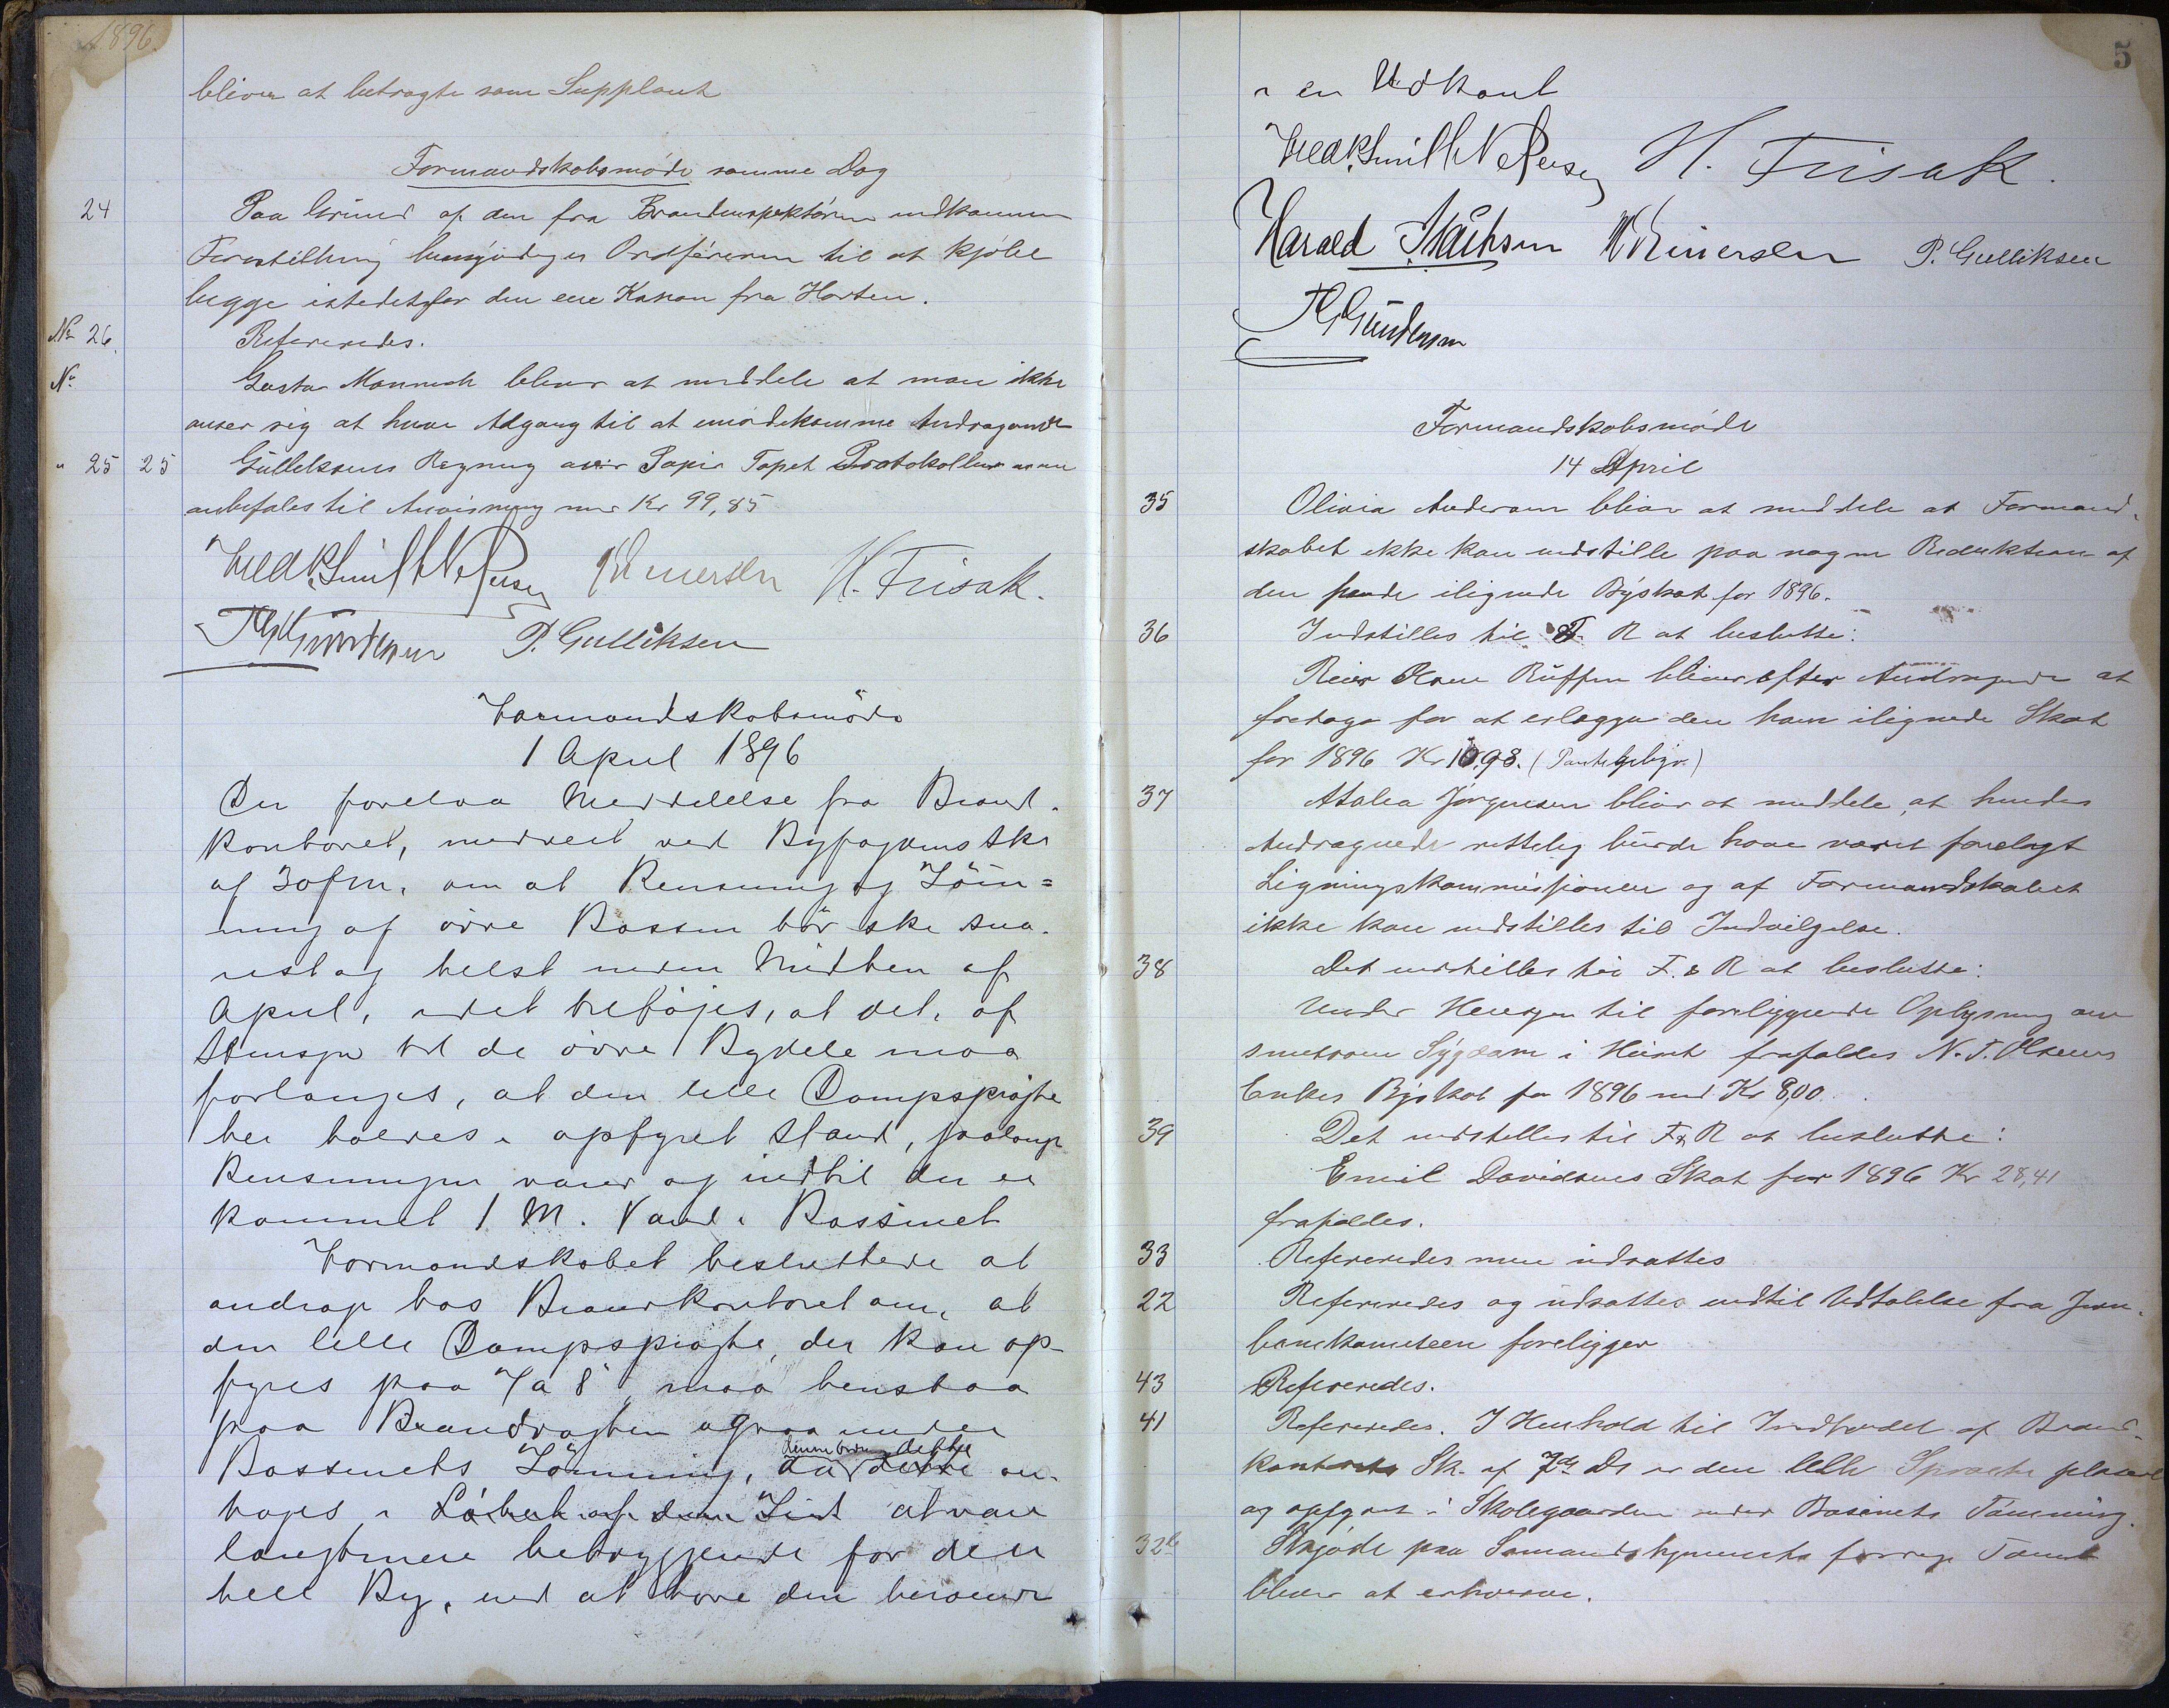 1896.
bliver at betragte som Suppleant
Formandskabsmøde samme Dag
24 Paa Grund af den fra Brandinspektøren indkomne
Forestilling bemyndiges Ordføreren til at kjøbe
begge istedetfor den ene Kanon fra Horten.
No 26. Refereredes.
No Gustav Mannich bliver at meddele at man ikke
anser sig at have Adgang til at imødekomme Andragendet
" 25 25 Gulliksens Regning over Papir Tapet Protokoller m m
anbefales til Anvisning med Kr 99,85
Fredk. Smith Petersen N Einersen H. Frisak.
Gundersen P. Gulliksen
Formandskabsmøde
1 April 1896
Der forelaa Meddelelse fra Brand-
kontoret, modtaget ved Byfogdens Skr
af 30 f m, om at Rensning og Tøm=
ning af øvre Bassin bør ske sna-
rest og helst inden Midten af
April, idet tilføjes, at det, af
Hensyn til de øvre Bydele maa
forlanges, at den lille Dampsprøjte
her holdes i opfyret Stand, saalænge
Rensningen varer og indtil der er
kommet 1 M. Vand i Bassinet
Formandskabet besluttede at
andrage hos Brandkontoret om, at
den lille Dampsprøjte, der kan op-
fyres paa 7 a 8', maa henstaa
paa Brandvagten ogsaa under
Bassinets Tømning, da dette an-
dette
tages i at være
langt mere betryggende for den
hele By, end at have den henstaaende
5
i en Udkant
Fredk. Smith Petersen H. Frisak.
Harald Isachsen N Einersen P. Gulliksen
Gundersen
Formandskabsmøde
14 April
35 Olivia Andersen bliver at meddele at Formand-
skabet ikke kan indstille paa nogen Reduktion af
den hende ilignede Byskat for 1896.
36 Indstilles til F & R at beslutte:
Reier Olsen Buffen bliver efter Andragende at
fritage for at erlægge den ham ilignede Skat
for 1896 Kr 10.93. (Pantegebyr.)
37 Atalea Jørgensen bliver at meddele, at hendes
Andragende rettelig burde have været forelagt
Ligningskommissionen og af Formandskabet
ikke kan indstilles til Indvilgelse.
38 Det indstilles til F. & R at beslutte:
Under Hensyn til foreliggende Oplysning om
smitsom Sygdom i Huset frafaldes N. T. Olsens
Enkes Byskat for 1896 med Kr 8,00.
39 Det indstilles til F & R at beslutte:
Emil Davidsens Skat for 1896 Kr 28,41
frafaldes.
33 Refereredes men udsattes
22 Refereredes og udsattes indtil Udtalelse fra Jern-
banekomiteen foreligger
43 Refereredes.
41 Refereredes. I Henhold til Indholdet af Brand-
kontorets Sk. af 7de Ds er den lille Sprøite placeret
og opfyret i Skolegaarden under Basinets Tømming.
32b Skjøde paa Sømandshjemmets forrige Tomt
bliver at erhverve.